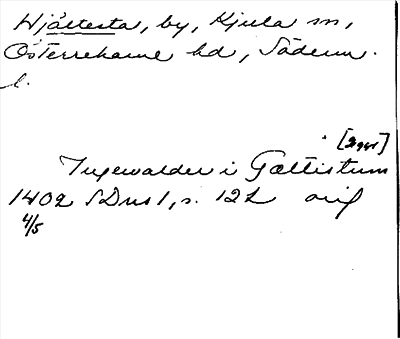 Hjältesta, by, Kjula sn,
Österrekarne hd, Söderm.
l.
[2 ggr]
Ingewalder i Gæltistum
1402 SDns 1, s. 122 orig
4/5